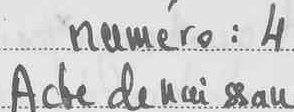 numéro : 4
Acte de naissan